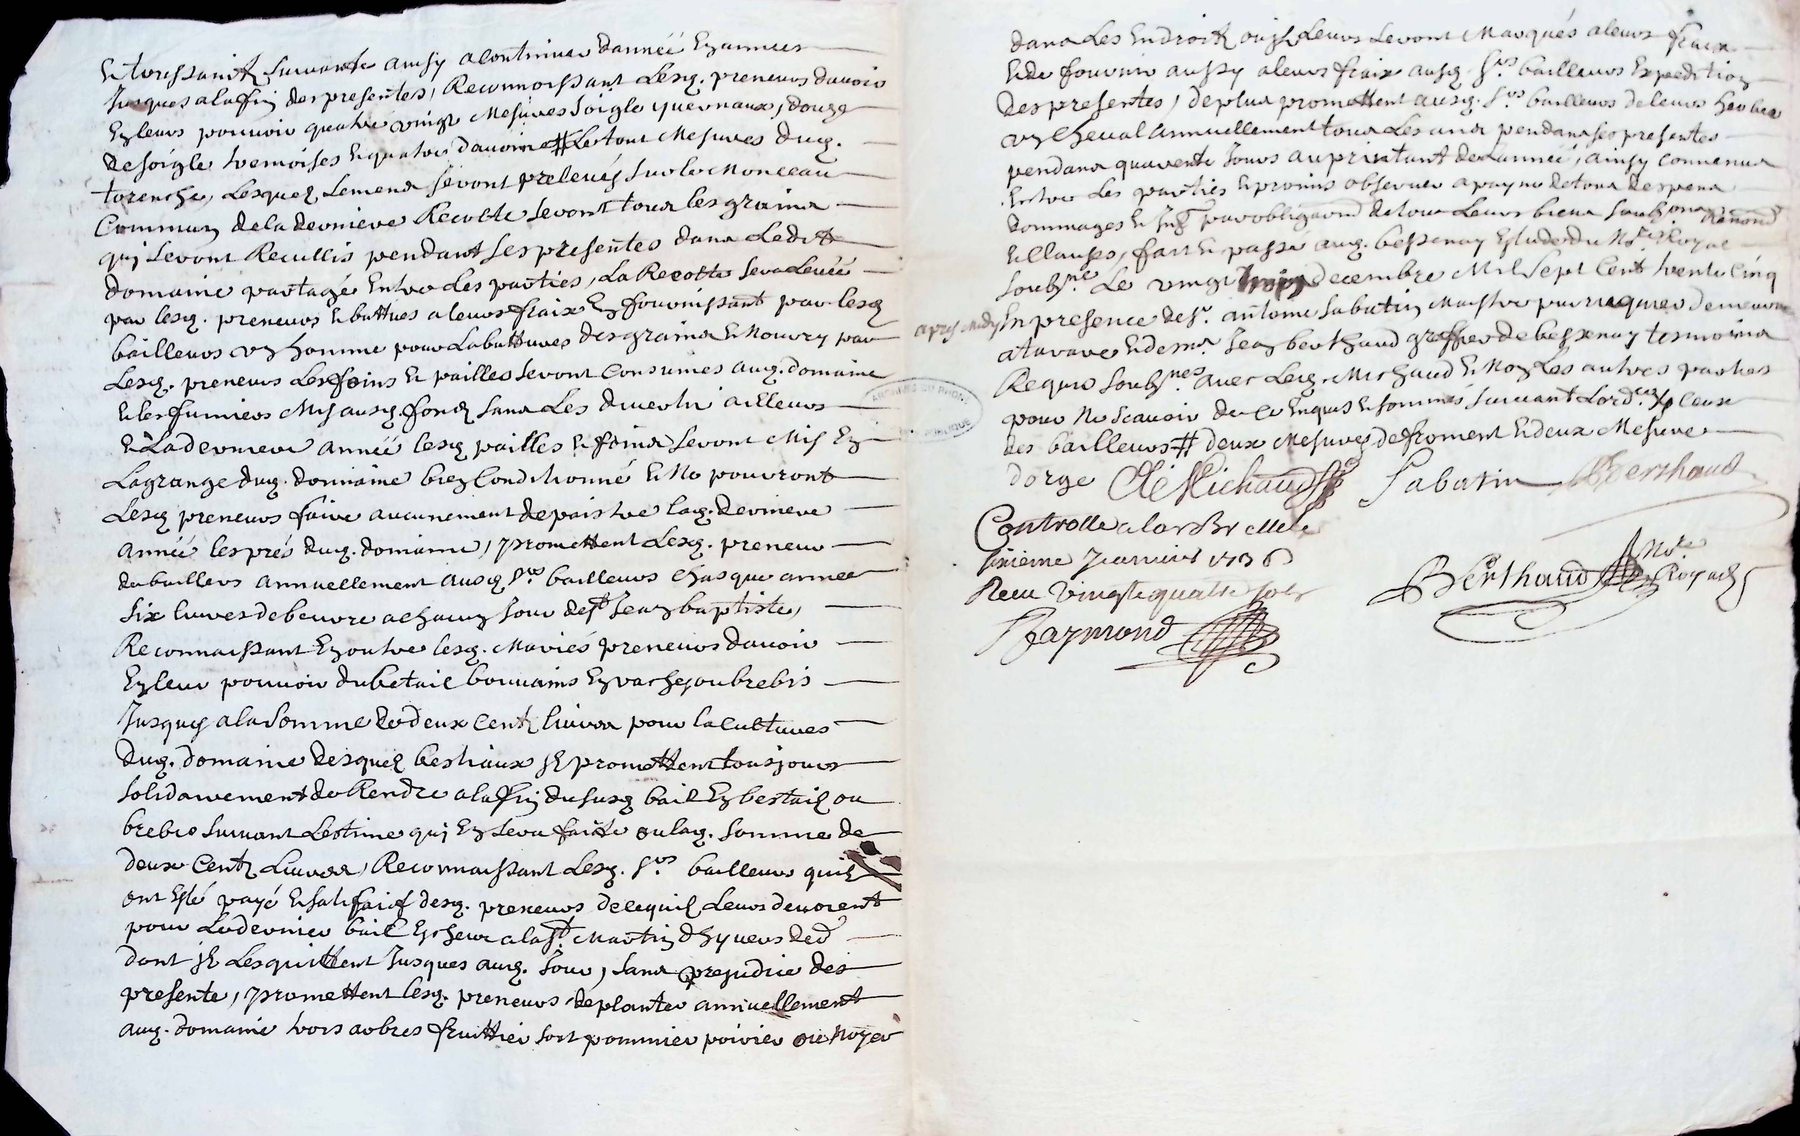 et toussainctz suivantes ainsy a continuer d'année en années
jusques a la fin des presentes, Reconnoissant lesd. preneurs d'avoir
en leurs pouvoir quatre vingt mesures soigle yvernaux, douze
de soigle tremoises et quatre d'avoine # le tout mesures dud.
torenche, lesquelz semens seront prelevés sur le monceau
commun de la derniere Recolte seront tous les grains
quy seront Recullis pendant ses presentes dans ledit
domaine partagé entre les parties, la Recolte sera levée
par lesd. preneurs et battues a leurs fraix en fournissant par lesd
bailleurs un homme pour la battures des grains et nourry par
lesd. preneurs les foins et pailles seront consumés aud. domaine
et les fumiers mis ausd. fondz sans les divertir ailleurs
et la derniere année lesd pailles et foins seront mis en
la grange dud. domaine bien conditionné et ne pouvront
lesd preneurs faire aucunement depaistre lad. derniere
année les prés dud. domaine, promettent lesd. preneur
de bailler annuellement ausd srs bailleurs chasque année
six livres de beurre a chacun jour de st Jean baptiste,
Reconnaissant en outre lesd. mariés preneurs d'avoir
en leur pouvoir du betail bouvains en vaches ou brebis
jusques a la somme de deux centz livres pour la cultures
dud. domaine desquelz bestiaux ilz promettent tousjours
solidairement de Rendre a la fin du susd bail en bestail ou
brebis suivant l'estime quy en sera faitte ou lad. somme de
deux centz livres, Reconnaissant lesd. srs bailleurs quilz
ont esté payé et satisfait desd. preneurs de ce quilz leurs devoient
pour le dernier bail escheu a la st Martin d'hyvers der
dont ilz les quittent jusques aud. jour, sans prejudice des
presente, promettent lesd. preneurs de planter annuellement
aud. domaine trois arbres fruittier soit pommier poirier ou noyer
dans les endroitz ou ilz leurs seront marqués a leurs fraix
et de fournir aussy a leurs fraix ausd. srs bailleurs expedition
des presentes, de plus promettent ausd. srs bailleurs de leurs
un cheval annuellement tous les ans pendans ses presentes
pendans quarente jours au printant de l'année, ainsy convenus
entre les parties et promis observer a payne de tous despens
dommages et par obligations de tous leurs biens
et clauses, fait et passé aud. bessenay estude du nore Royal
soubsné le vingt trois decembre mil sept cent trente cinq
apres midy en presence de sr. antoine sabatin maistre
a tarare et de me. Jean berthaud greffier de bessenay tesmoins
Requis soubsnés avec led. Michaud et non les autres parties
pour ne scavoir de ce enquis et sommés suivant l'ordce
des bailleurs # deux mesures de froment et deux mesure
d'orge Michaud Sabatin Berthaud
Controlle a larbrelle le
sixieme Janvier 1736
Receu vingt quatre sols
Raymond
Berthaud Nore Royal